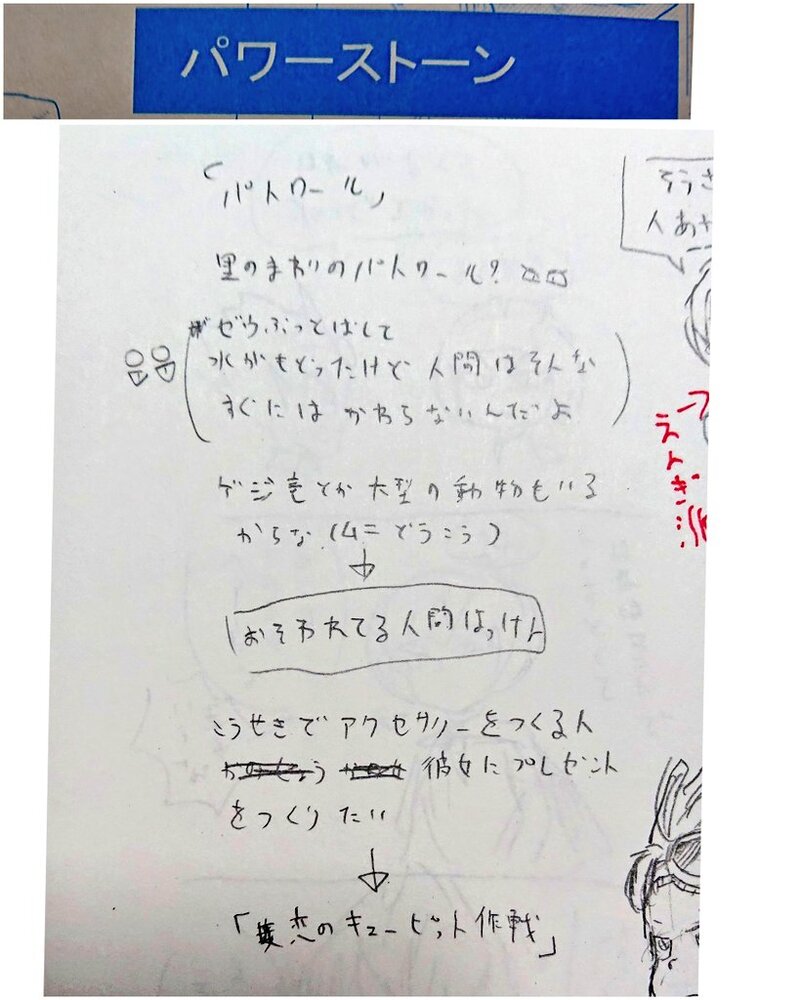 パワーストーン
「パトロール」
里のまわりのパトロール?
ゼウぶっとばして
水がもどったけど人間はそんな
すぐにはかわらないんだよ
ゲジ竜とか大型の動物もいる
からな(ムニどうこう)
おそわれてる人間はっけん
こうせきでアクセサリーをつくる人
彼女にプレゼント
をつくりたい
「恋のキューピット作戦」
そうさ
人あさ